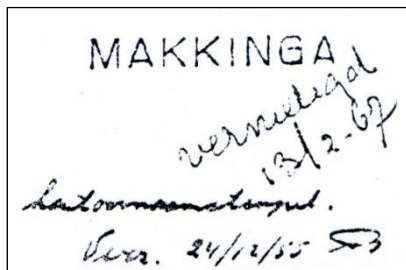 MAKKINGA
vernietigd
13/2-67
kantoornaamstempel.
Verz. 24/12/55